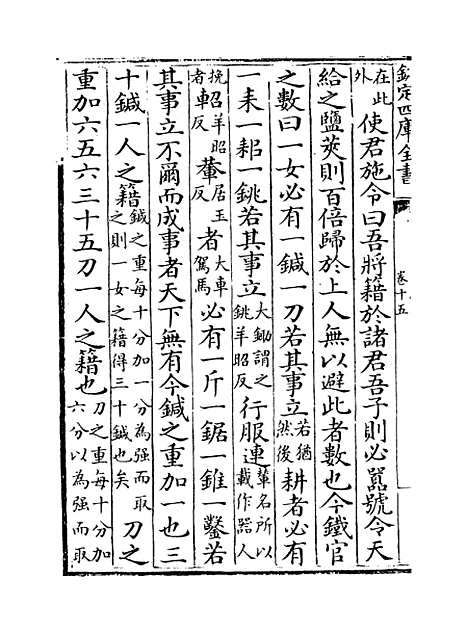 欽定四庫全書
卷十五
在此外使君施令曰吾將籍於諸君吾子則必囂號令天
給之鹽莢則百倍歸於上人無以避此者數也今鐵官
之數曰一女必有一鍼一刀若其事立若猶然後耕者必有
一耒一耜一銚若其事立大鋤謂之銚羊昭反行服連輦名所以載作器人
挽者軺羊昭反輂居玉反者大車駕馬必有一斤一鋸一錐一鑿若
其事立不爾而成事者天下無有今鍼之重加一也三
十鍼一人之籍鍼之重每十分加一分為強而取之則一女之籍得三十鍼也矣刀之
重加六五六三十五刀一人之籍也刀之重每十分加六分以為強而取